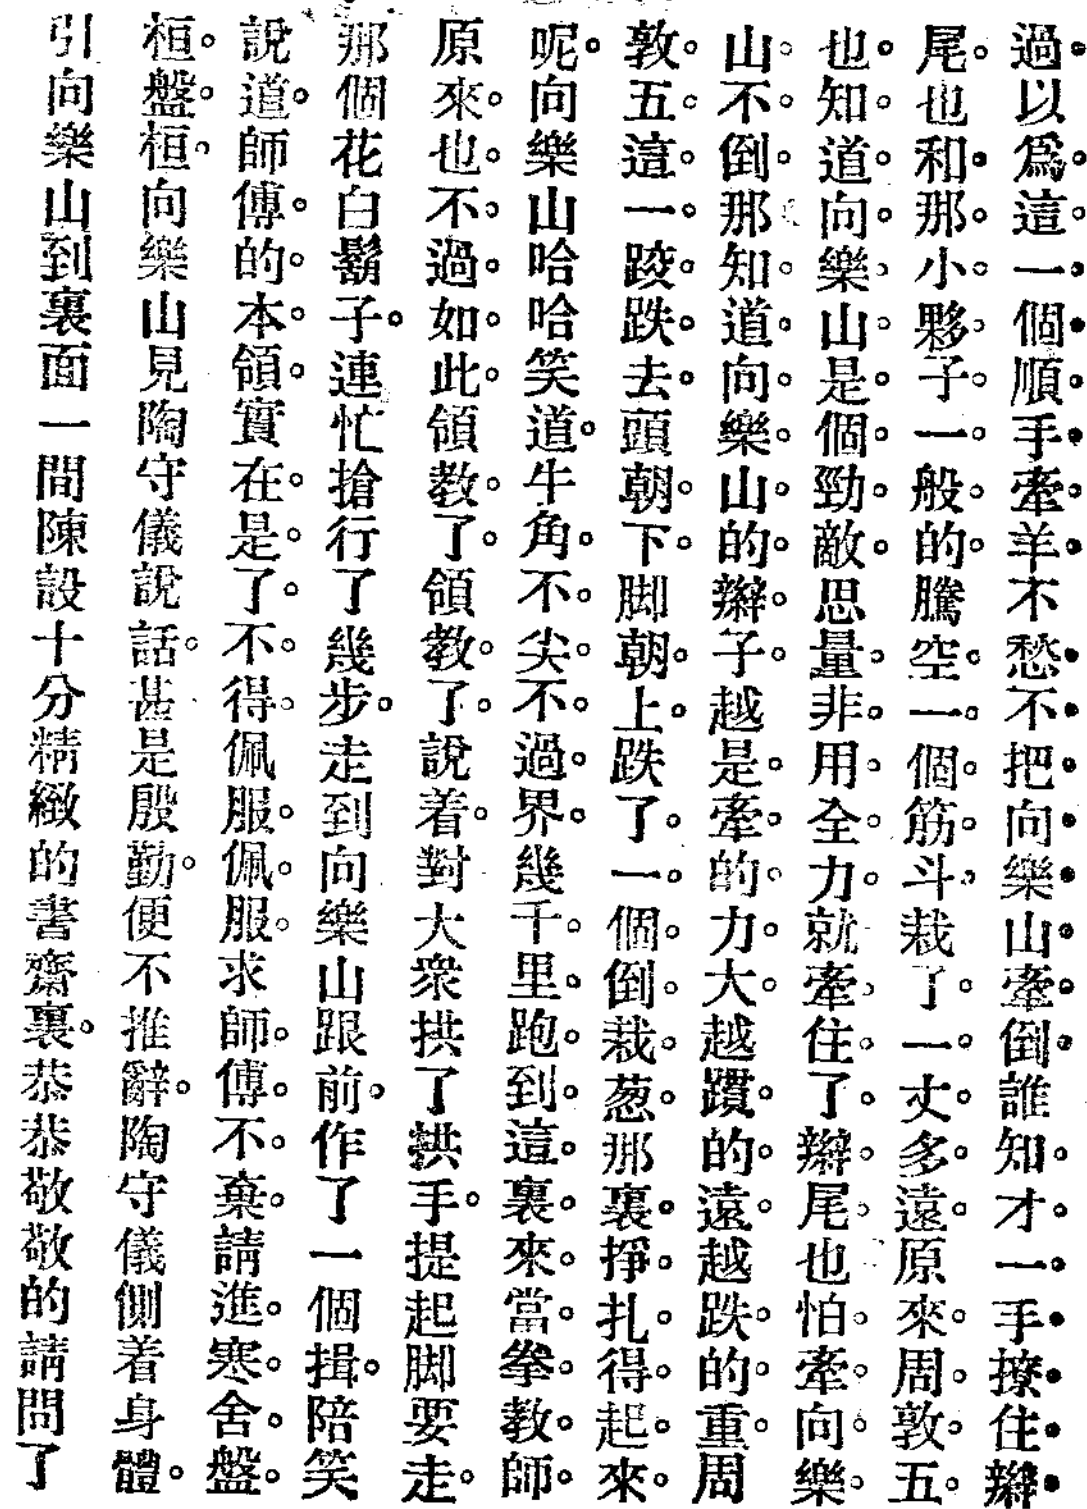 過。以爲。這。一。個。順。手。牽。羊。不愁。不。把。向。樂。山。牽。倒。誰知。才。一。手。撩。住。辮。
尾。也和。那。小。夥。子。一。般。的。騰空。一。個。筋。斗。栽了。一。丈。多。遠。原來。周。敦。五。
也。知。道。向。樂。山。是。個。勁。敵。思量。非。用。全。力。就牽。住。了。辮。尾。也怕。牽。向。樂。
山。不。倒。那知。道。向。樂。山。的。辮。子。越是。牽。的。力。大。越躓。的。遠。越跌。的。重。周
敦。五。這。一。跤。跌。去。頭朝。下。脚朝。上。跌了。一。個。倒。栽。葱。那裏。掙。扎。得。起。來。
呢。向樂山哈哈笑道。牛角。不。尖。不。過。界。幾千。里。跑。到。這。裏。來。當。拳。教。師。
原來。也。不。過。如。此。領教。了。領教。了。說着。對大衆拱了拱手。提起脚要走。
那個花白鬍子。連忙搶行了幾步。走到向樂山跟前。作了一個揖。陪笑
說道。師傅。的。本。領。實在。是。了。不。得。佩服。佩。服。求師。傅。不。棄。請進。寒。舍。盤。
桓。盤。桓。向樂山見陶守儀說話。甚是殷勤。便不推辭。陶守儀側着身體。
引向樂山到裏面一間陳設十分精緻的書齋裏。恭恭敬敬的請問了